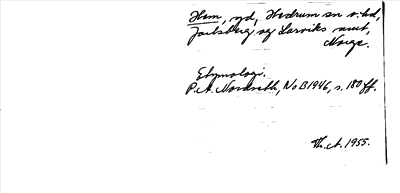 Hem, gd, Hedrum sn o. hd,
Jarlsberg og Larviks amt,
Norge.
Etymologi.
P.A. Nordseth, NoB 1946, s. 180 ff.
Th.A. 1955.